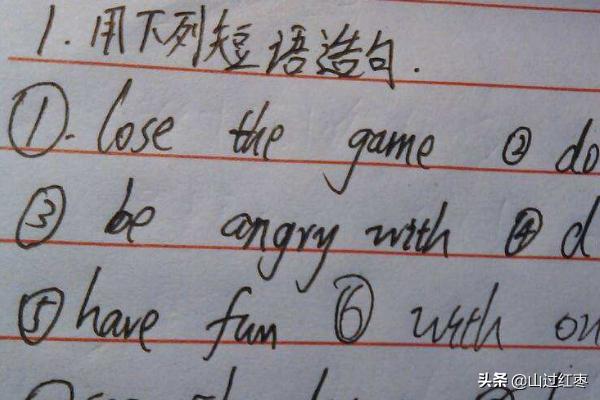 1.用下列短语造句.
①.lose the game ② do
③ be angry with ④ d
⑤ have fun ⑥ with on
头条 @山过红枣